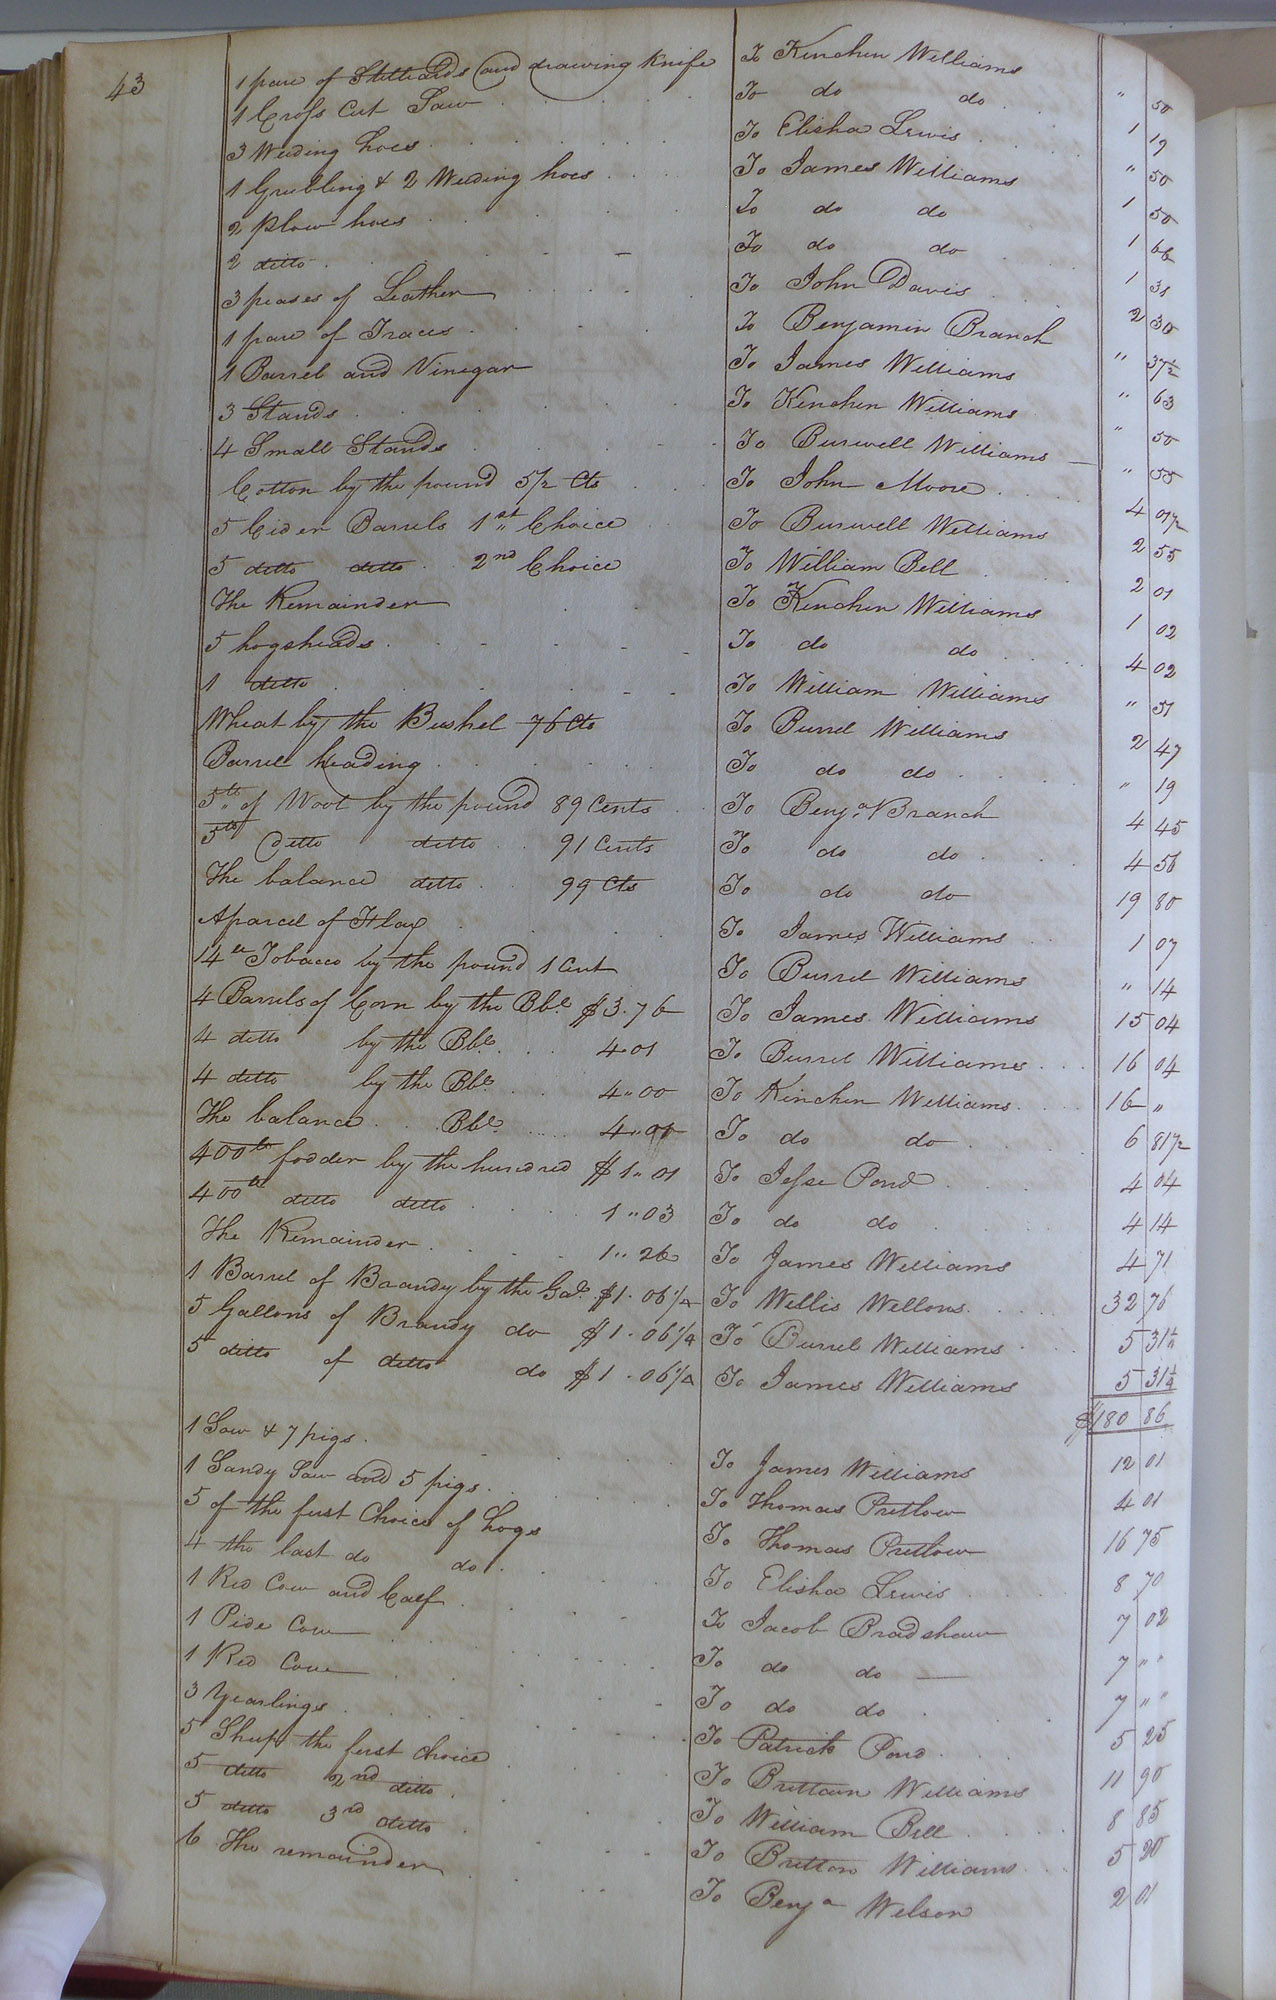 43
1 pare of Stilliards and drawing Knife To Kinchen Williams " 50
1 Cross Cut Saw To do do 1 19
3 Weeding hoes To Elisha Lewis " 50
1 Grubbing & 2 Weeding hoes To James Williams 1 50
2 plow hoes To do do 1 66
2 ditto To do do 1 31
3 peases of Leather To John Davis 2 30
1 pare of Traces To Benjamin Branch " 37½
1 Barrel and Vinegar To James Williams " 63
3 Stands To Kinchen Williams " 50
4 Small Stands To Burwell Williams " 55
Cotton by the pound 5½ Cts To John Moore 4 01½
5 Cider Barrels 1st Choice To Burwell Williams 2 55
5 ditto ditto 2nd Choice To William Bell 2 01
The Remainder To Kinchen Williams 1 02
5 hogsheads To do do 4 02
1 ditto To William Williams " 51
Wheat by the Bushel 76 Cts To Burrel Williams 2 47
Barrel heading To do do " 19
5 lb of Wool by the pound 89 Cents To Benja Branch 4 45
5 lb ditto ditto 91 Cents To do do 4 56
The balance ditto 99 Cts To do do 19 80
A parcel of Flax To James Williams 1 07
14 lb Tobacco by the pound 1 Cent To Burrel Williams " 14
4 Barrels of Corn by the Bbl $3.76 To James Williams 15 04
4 ditto by the Bbl 4.01 To Burrel Williams 16 04
4 ditto by the Bbl 4"00 To Kinchen Williams 16 "
The balance Bbl 4"01 To do do 6 81½
400 lb fodder by the hundred $1"01 To Jesse Pond 4 04
400 lb ditto ditto 1"03 To do do 4 14
The Remainder 1"26 To James Williams 4 71
1 Barrel of Braandy by the Gal $1.06¼ To Willis Wellons 32 76
5 Gallons of Brandy do $1.06¼ To Burrel Williams 5 31¼
5 ditto of ditto do $1.06¼ To James Williams 5 31¼
$180 86
1 Sow & 7 pigs To James Williams 12 01
1 Sandy Sow and 5 pigs To Thomas Pretlow 4 01
5 of the first Choice of hogs To Thomas Pretlow 16 75
4 the last do do To Elisha Lewis 8 70
1 Red Cow and Calf To Jacob Bradshaw 7 02
1 Pide Cow To do do 7 " "
1 Red Cow To do do 7 " "
3 Yearlings To Patrick Pond 5 25
5 Sheep the first choice To Brittain Williams 11 90
5 ditto 2nd ditto To William Bell 8 85
5 ditto 3rd ditto To Britton Williams 5 20
6 The remainder To Benja Welson 2 01